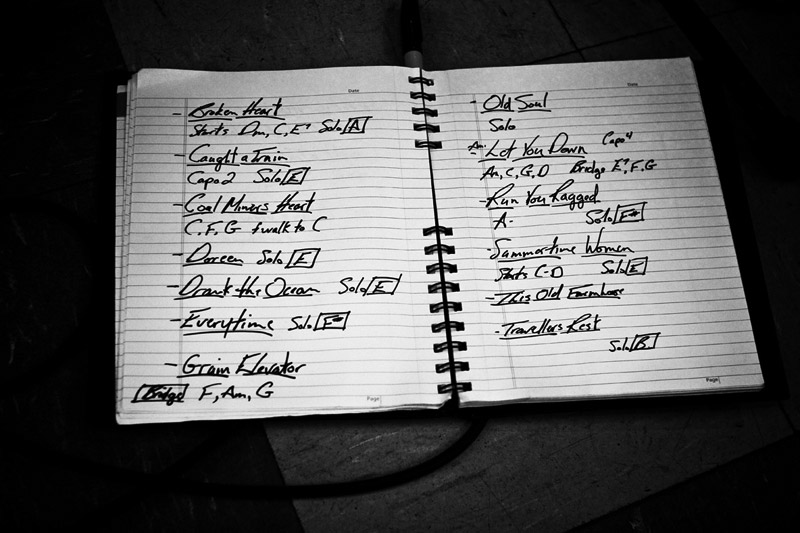 Date
- Broken Heart
Starts Dm, C, E7 Solo A
- Caught a Train
Capo 2 Solo E
- Coal Miners Heart
C, F, G walk to C
- Doreen Solo E
- Drank the Ocean Solo E
- Everytime Solo F#
- Grain Elevator
Bridge F, Am, G
Page
Date
- Old Soul
Solo
Am - Let You Down Capo 4
Am, C, G, D Bridge E7, F, G
- Run You Ragged
A- Solo F#
- Summertime Women
Starts C-D Solo E
- This Old Farmhouse
- Travellers Rest
Solo B
Page